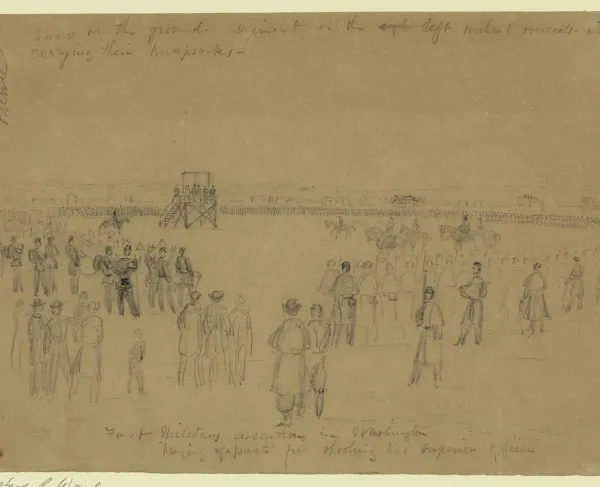 Snow on the ground. regiment on the left without overcoats and
carrying their knapsacks-
First Military execution in Washington
hanging of a private for shooting his superior officer
Alfred R Waud